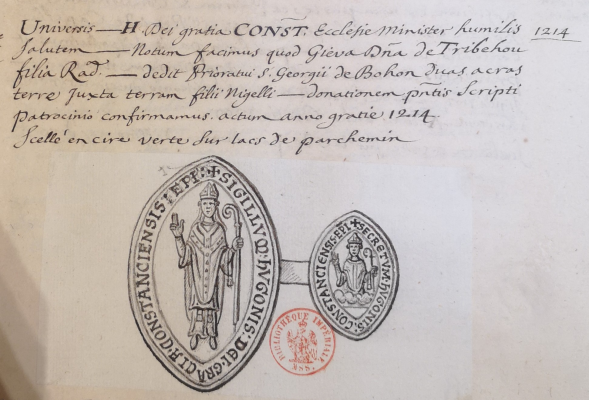 Universis — H Dei gratia CONST. Ecclesie Minister humilis
1214
Salutem — Notum facimus quod Gieva Dña de Tribehou
filia Rad. — dedit Prioratui S. Georgii de Bohon duas acras
terre juxta terram filii Nigelli — donationem pñtis Scripti
patrocinio confirmamus. actum anno gratie 1214.
Scellé en cire verte sur lacs de parchemin
+ SIGILLVM: HVGONIS: DEI: GRACIA: CONSTANCIENSIS: EPI:
+ SECRETVM: HVGONIS: CONSTANCIENSIS: EPI
BIBLIOTHÈQUE IMPÉRIALE